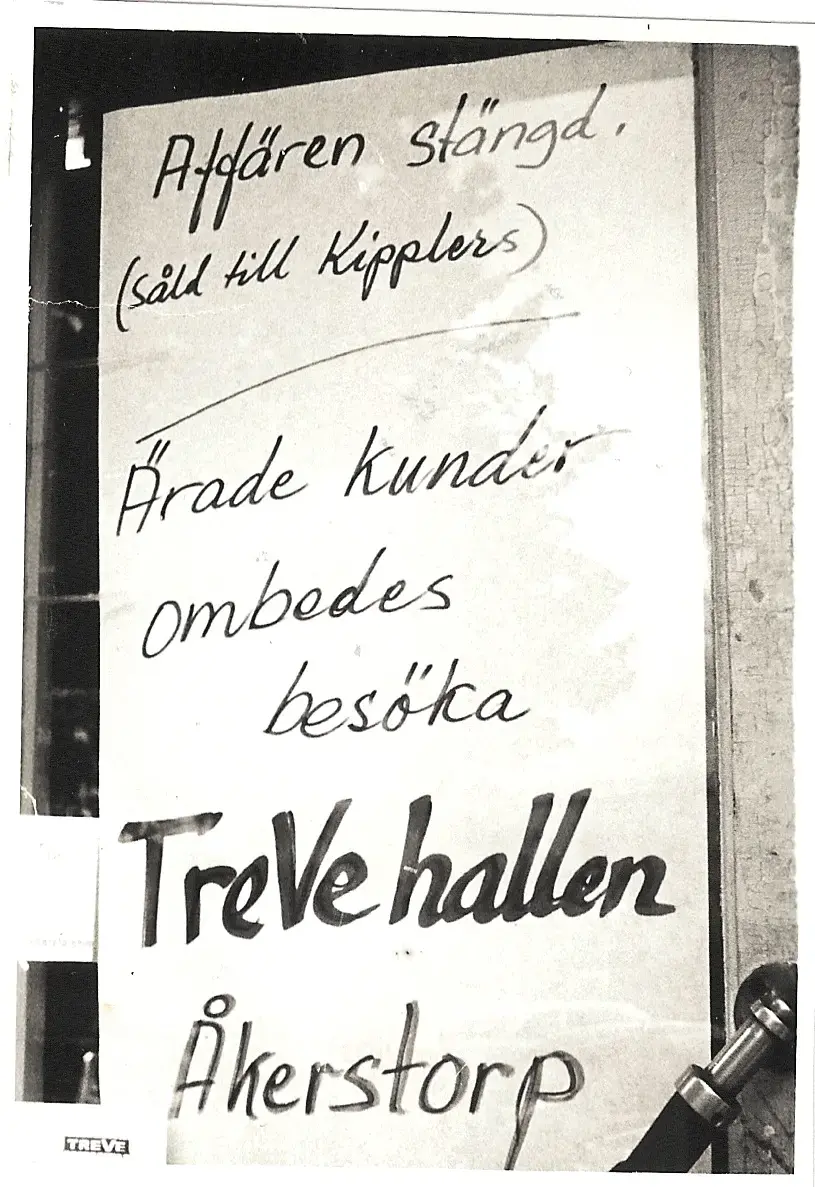 Affären stängd.
(såld till Kipplers)
Ärade kunder
ombedes
besöka
TreVe hallen
Åkerstorp
TREVE